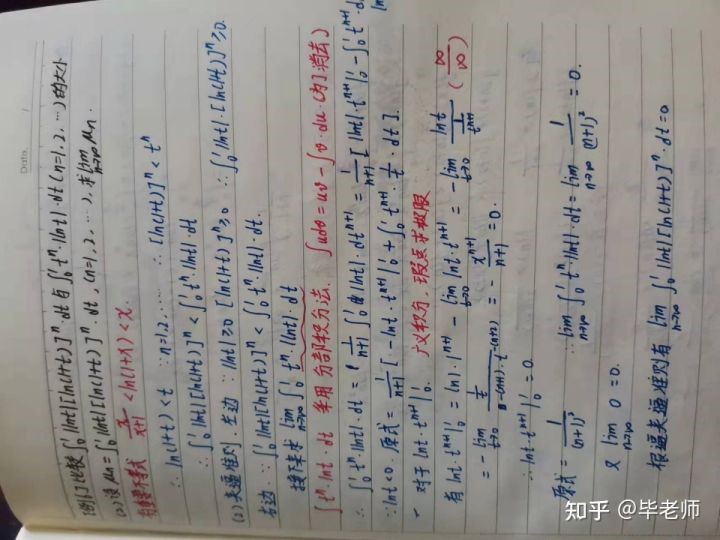 Date. /
[例6] 比较∫₀¹|lnt|[ln(1+t)]ⁿ·dt与∫₀¹tⁿ·|lnt|·dt (n=1,2,…)的大小
(2) 设 μn=∫₀¹|lnt|[ln(1+t)]ⁿ dt, (n=1,2,…),求lim n→∞ μn.
有重要不等式 x/(x+1) < ln(1+x) < x.
∴ ln(1+t) < t ∵ n=1,2,… ∴ [ln(1+t)]ⁿ < tⁿ
∴ ∫₀¹|lnt|[ln(1+t)]ⁿ < ∫₀¹tⁿ·|lnt|·dt
(2) 夹逼准则. 左边 ∵ |lnt|≥0 [ln(1+t)]ⁿ≥0 ∴ ∫₀¹|lnt|·[ln(1+t)]ⁿ≥0.
右边 ∵ ∫₀¹|lnt|[ln(1+t)]ⁿ < ∫₀¹tⁿ·|lnt|·dt.
接下来求 lim n→∞ ∫₀¹tⁿ·|lnt|·dt
∫tⁿ·lnt·dt 采用分部积分法. ∫udv=uv-∫v·du.(为了消去)
∴ ∫₀¹tⁿ·|lnt|·dt = 1/(n+1) ∫₀¹|lnt|·dtⁿ⁺¹ = 1/(n+1) [|lnt|·tⁿ⁺¹|₀¹ - ∫₀¹tⁿ⁺¹·d
∵ lnt<0. 原式 = 1/(n+1) [-lnt·tⁿ⁺¹|₀¹ + ∫₀¹tⁿ⁺¹·1/t·dt].
对于 lnt·tⁿ⁺¹|₀¹. 广义积分 瑕点求极限
有 lnt·tⁿ⁺¹|₀¹ = ln1·1ⁿ⁺¹ - lim t→0 lnt·tⁿ⁺¹ = -lim t→0 lnt/(1/tⁿ⁺¹) (∞/∞)
= -lim t→0 (1/t)/(-(n+1)·t^-(n+2)) = - xⁿ⁺¹/(n+1) = 0.
∴ lnt·tⁿ⁺¹|₀¹ = 0.
原式= 1/(n+1)² ∴ lim n→∞ ∫₀¹tⁿ·|lnt|·dt = lim n→∞ 1/(n+1)² = 0.
又 lim n→∞ 0 = 0.
根据夹逼准则有 lim n→∞ ∫₀¹|lnt|[ln(1+t)]ⁿ·dt=0
知乎 @毕老师